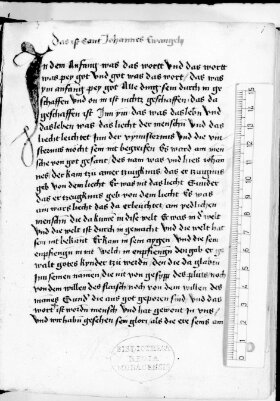 Das ist Sant Johannes Ewangely
In dem Anfang was das wortt Vnd das wortt
was pey got Vnd got was das wort / das was
ym anfang pey got Alle ding sein durch in ge
schaffen Vnd on in ist nichts geschaffen das da
geschaffen ist Inn ym das was das lebn Vnd
das leben was das liecht der menschn Vnd das
liecht leichtet Inn der vynnsternuß Vnd die vin
sternuß mocht sein nit begreiffen Es ward am men
sche von got gesant / des nam was Vnd hies Johan
nes der kam tzu ainer tzeugknuß das er tzeugnuß
geb von dem liecht Er was nit das liecht Sunder
das er tzeugknuß geb von dem liecht Es was
am wars liecht das da erleichtet am yedlichen
menschn die da kume in dise welt Er was in der welt
Vnd die welt ist durch in gemacht Vnd die welt hat
sein nit bekant Er kam in sein aygen Vnd die sein
enpfiengn in nit Welch in enpfiengn den gab er ge
walt gottes kynder tzu werdn den die da glabtn
Inn seinen namen die nit von des pluts noch
von den willen des flaisch noch von dem willen des
manes Sund die aus got geporen sind Vnd das
wort ist wordn mensch Vnd hat gewont in vns /
Vnd wir habn gesehen sein glori als die ere seins am
BIBLIOTHECA
REGIA
MONACENSIS